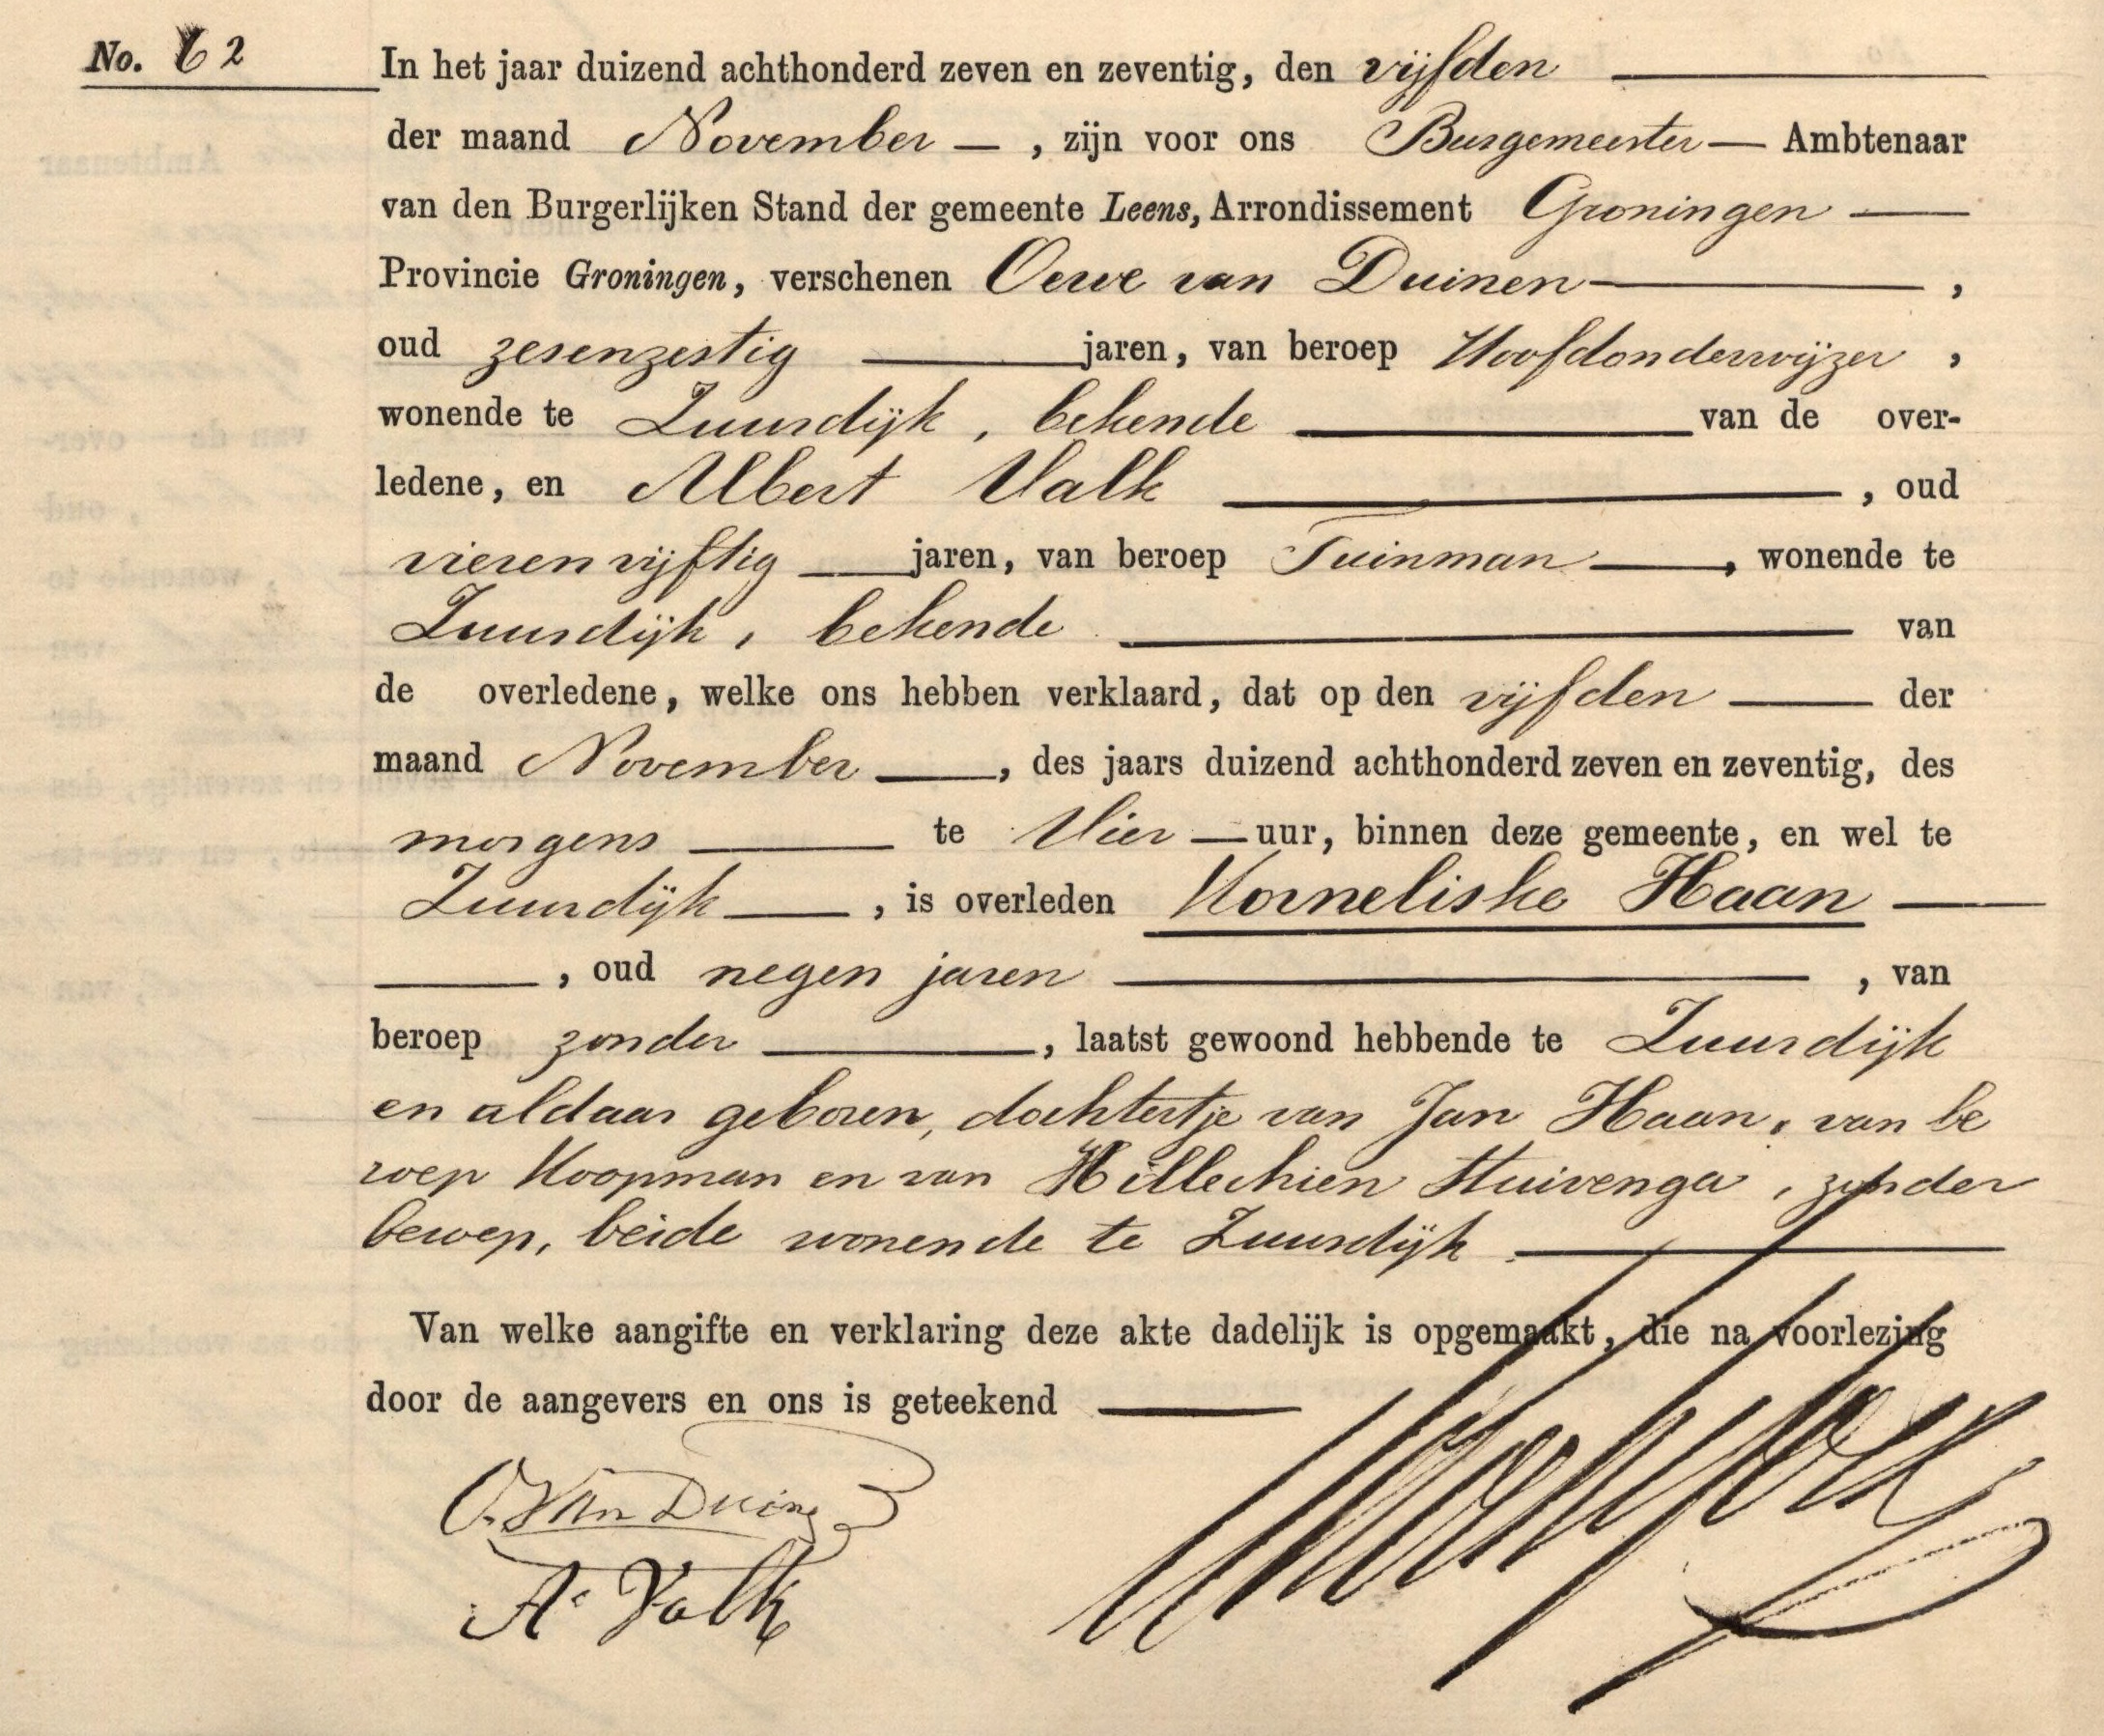 No. 62
In het jaar duizend achthonderd zeven en zeventig, den vijfden
der maand November —, zijn voor ons Burgemeester — Ambtenaar
van den Burgerlijken Stand der gemeente Leens, Arrondissement Groningen —
Provincie Groningen, verschenen Oewe van Duinen —,
oud zesenzestig — jaren, van beroep Hoofdonderwijzer,
wonende te Zuurdijk, bekende — van de over-
ledene, en Albert Valk —, oud
vierenvijftig — jaren, van beroep Tuinman —, wonende te
Zuurdijk, bekende — van
de overledene, welke ons hebben verklaard, dat op den vijfden — der
maand November —, des jaars duizend achthonderd zeven en zeventig, des
morgens — te Vier — uur, binnen deze gemeente, en wel te
Zuurdijk —, is overleden Korneliske Haan —
—, oud negen jaren —, van
beroep zonder —, laatst gewoond hebbende te Zuurdijk
en aldaar geboren, dochtertje van Jan Haan, van be
roep Koopman en van Hillechien Stuivenga, zonder
beroep, beide wonende te Zuurdijk —
Van welke aangifte en verklaring deze akte dadelijk is opgemaakt, die na voorlezing
door de aangevers en ons is geteekend —
O. Van Duinen
A. Valk